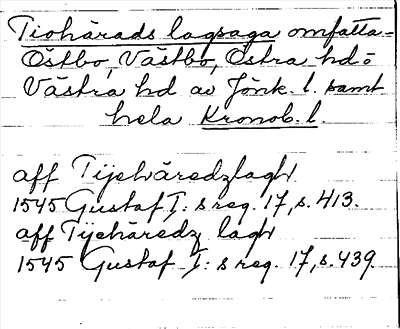 Tiohärads lagsaga omfatta-
Östbo, Västbo, Östra hd o
Västra hd av Jönk. l. samt
hela Kronob. l.
aff Tijehäredzlaghꝛ
1545 Gustaf I:s reg. 17, s. 413.
aff Tijehäredz lagh
1545 Gustaf I:s reg. 17, s. 439.